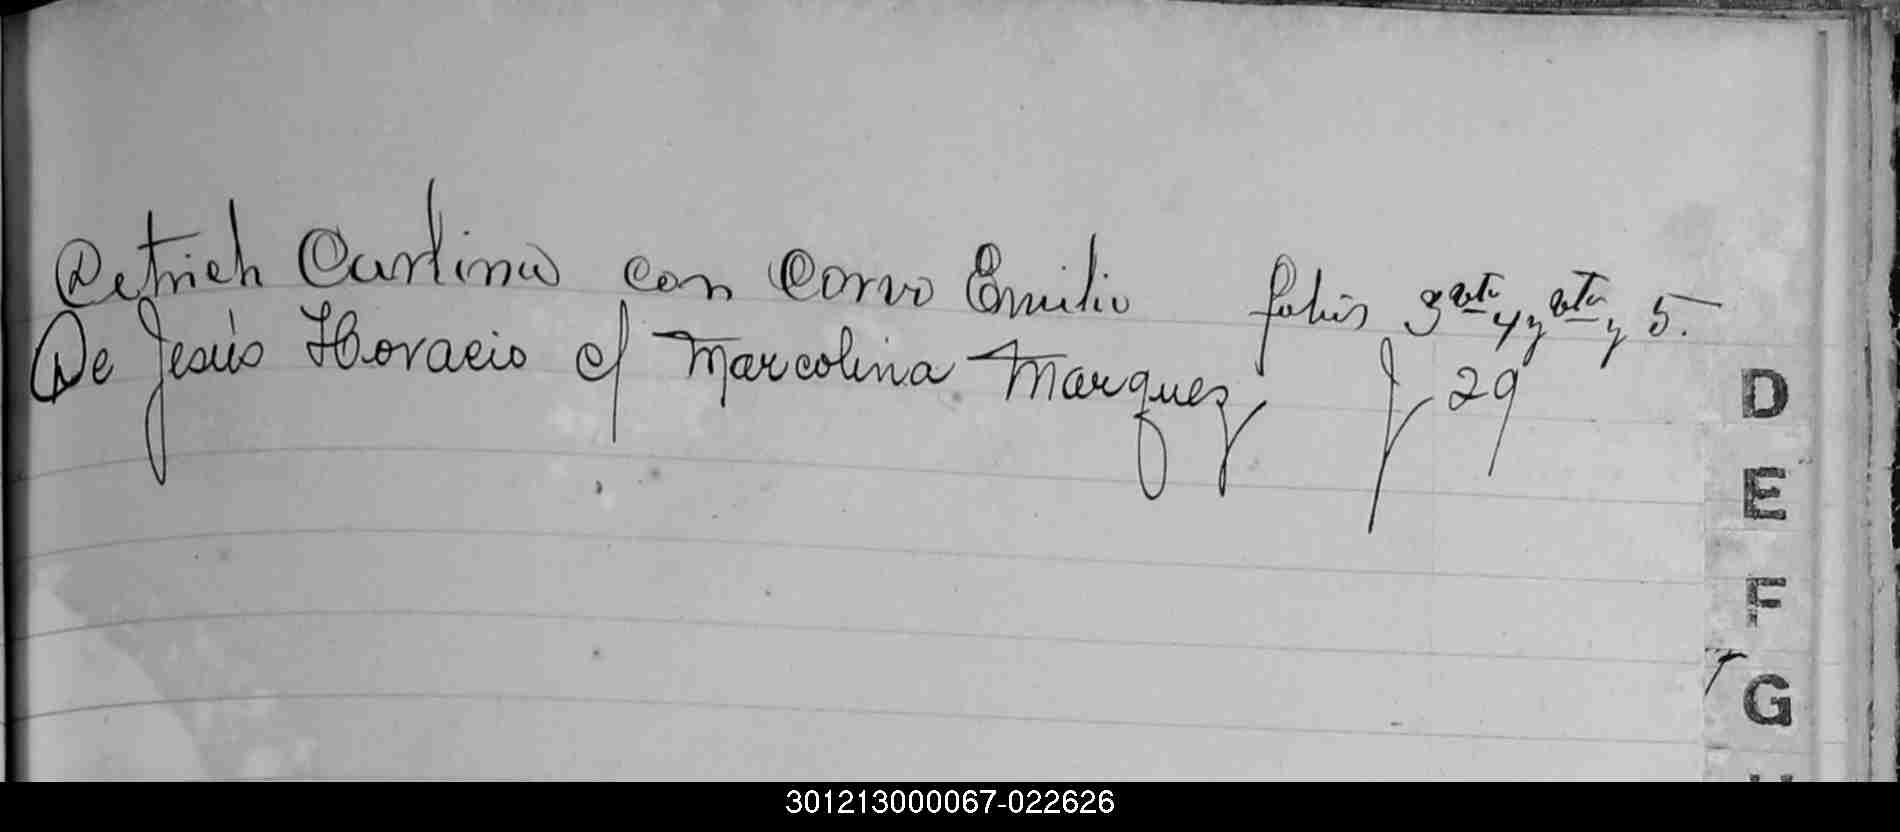 Detrich Carlina con Corvo Emilio folios 3 vta 4 y vta y 5.
De Jesús Horacio c/ Marcolina Marquez f 29
D
E
F
G
301213000067-022626